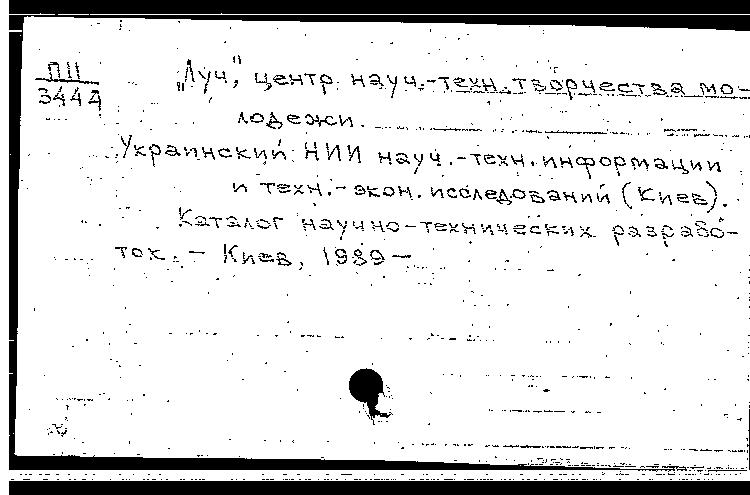 П11
3444
„Луч," центр науч.-техн. творчества мо-
лодежи.
Украинский НИИ науч.-техн. информации
и техн.-экон. исследований (Киев).
Каталог научно-технических разрабо-
ток. – Киев, 1989 –